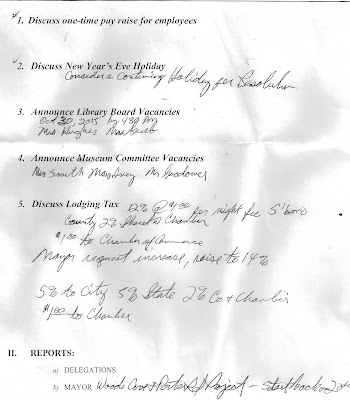 1. Discuss one-time pay raise for employees
2. Discuss New Year's Eve Holiday
Consider a Continuing Holiday per Resolution
3. Announce Library Board Vacancies
Oct 30, 2015 by 430 pm
Mrs Hughes Mrs
4. Announce Museum Committee Vacancies
Mrs Smith Mrs Ivey Mr Goodower
5. Discuss Lodging Tax 12% @ $1.00 per night fee
County 2% Shared Chamber
$1.00 to Chamber of Commerce
Mayor request increase, raise to 14%
5% to City 5% State 2% Co + Chamber
$1.00 to Chamber
II. REPORTS:
a) DELEGATIONS
b) MAYOR Woods Cove Project - Start back on